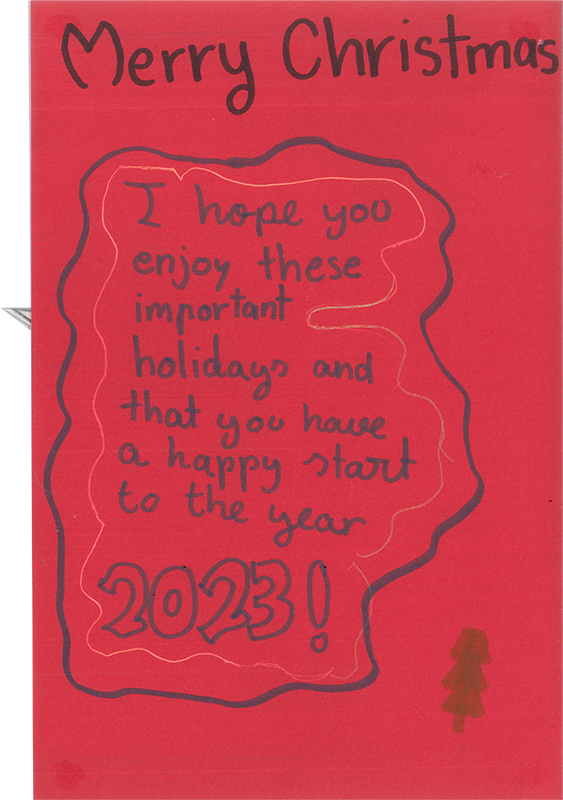 Merry Christmas
I hope you
enjoy these
important
holidays and
that you have
a happy start
to the year
2023!